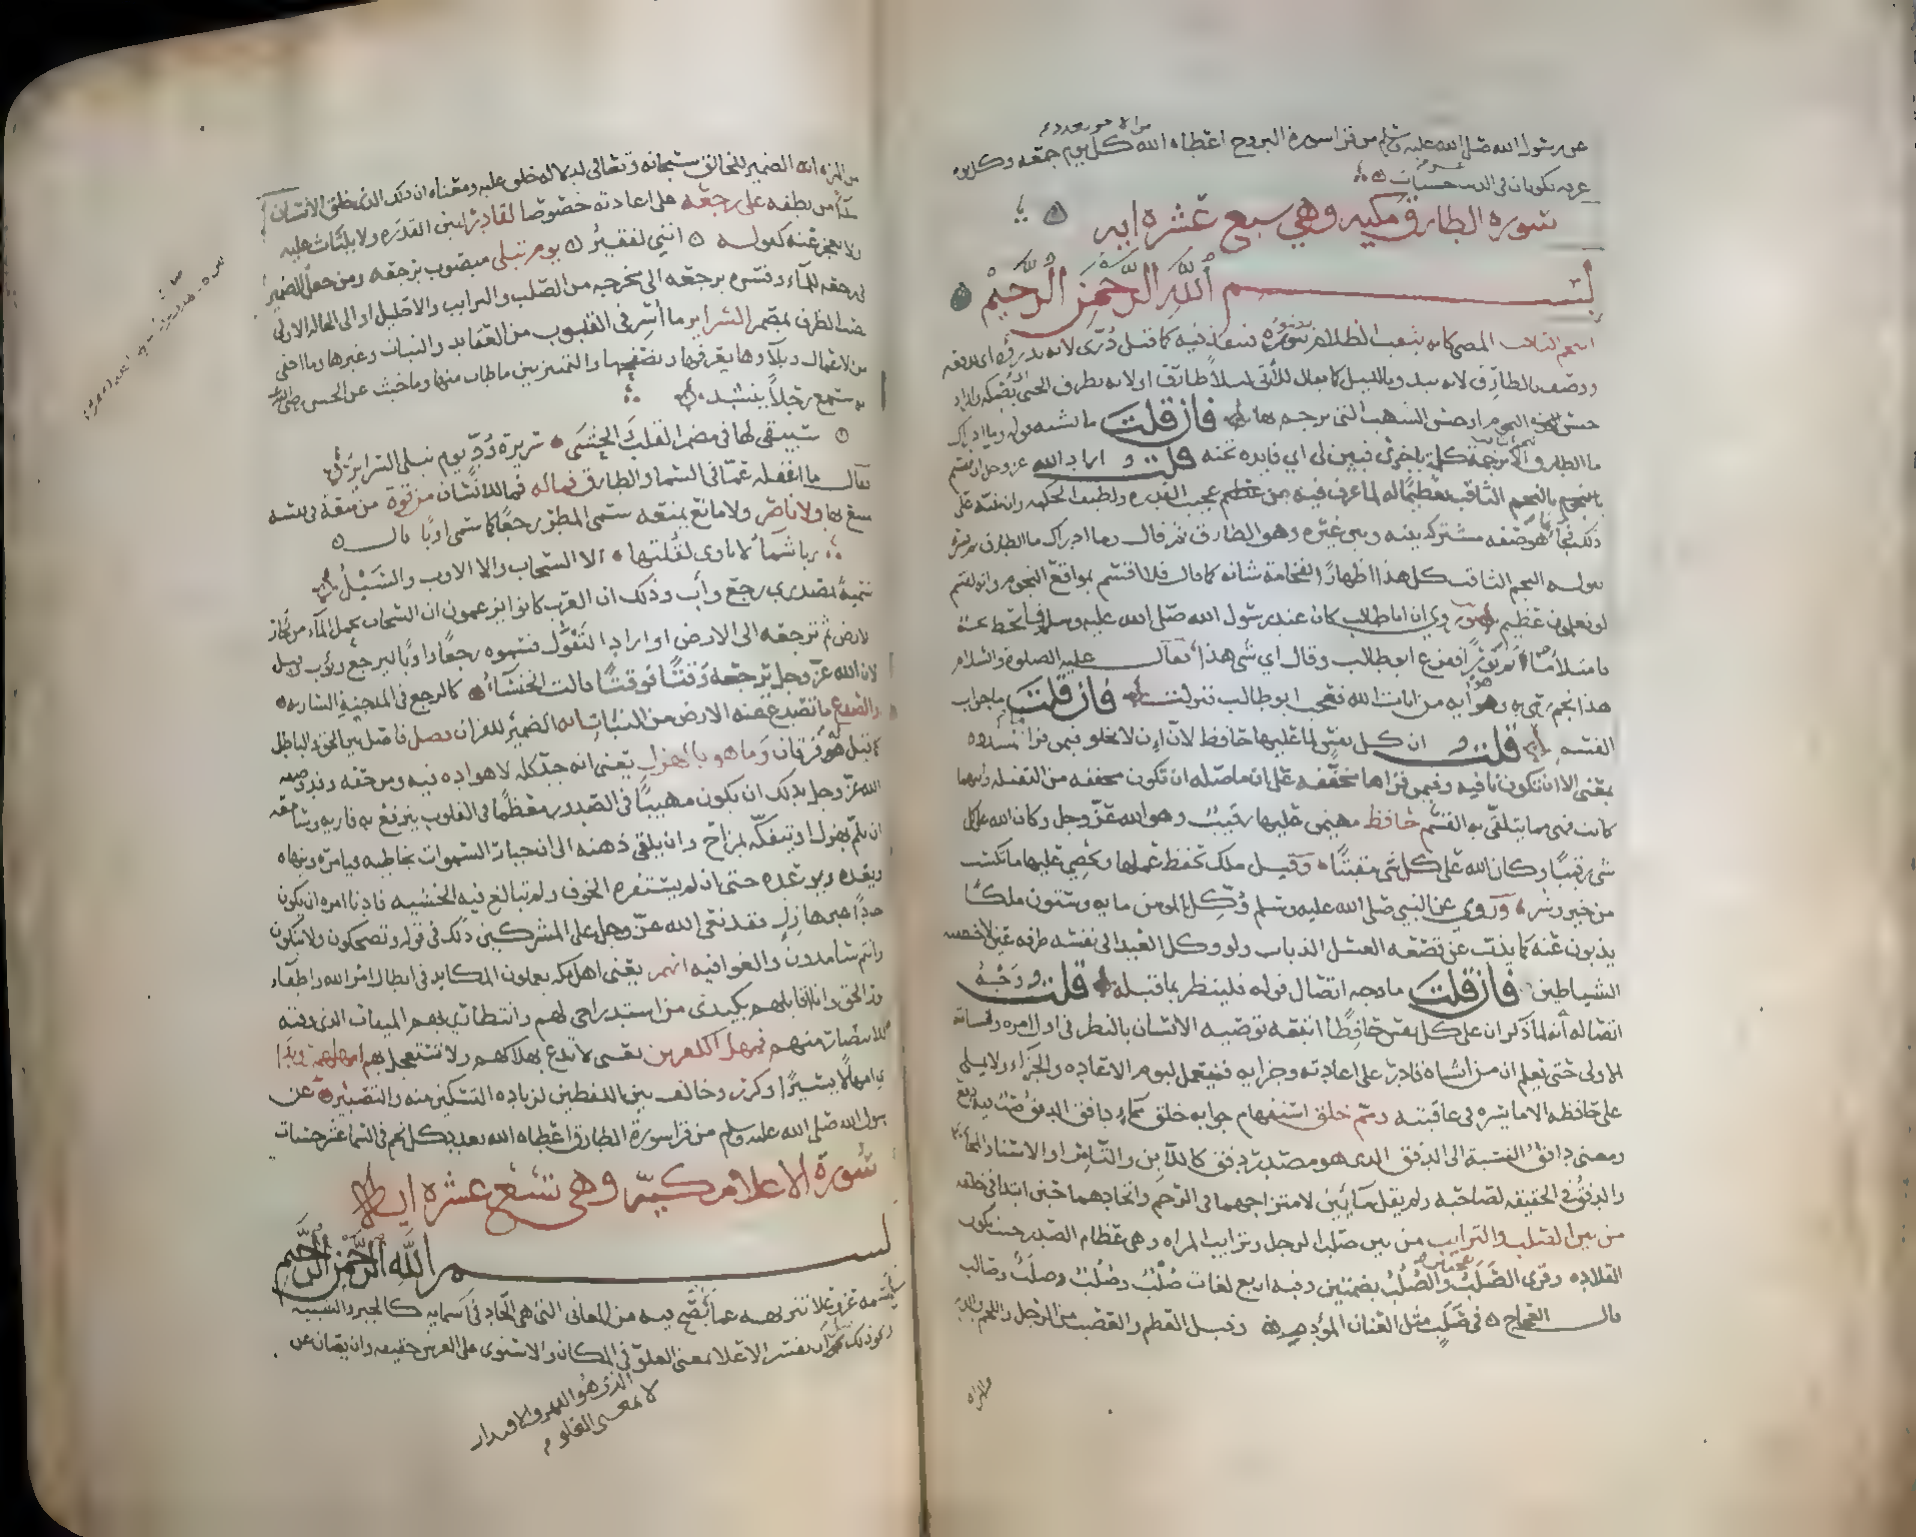 عن رسول الله صلى الله عليه وسلم من قرا سورة البروج اعطاه الله كل يوم جمعه وكل يوم
عرفه يكون في الدنيا حسنات
سورة الطارق مكيه وهي سبع عشره ايه
بسم الله الرحمن الرحيم
النجم الثاقب المضي كانه يثقب الظلام بضوءه فينفذ فيه كما قيل درى لانه يدرؤه اي يدفعه
ووصف بالطارق لانه يبدو بالليل كما يقال للآتي ليلا طارق او لانه يطرق الجني اي يصكه والمراد
جنس النجوم او جنس الشهب التي يرجم بها فان قلت ما يشبه قوله وما ادراك
ما الطارق الا ترجمة كلمة باخرى فبين لي اي فايده تحته قلت اراد الله عز وجل ان يقسم
بالنجم الثاقب تعظيما له لما عرف فيه من عظيم عجيب القدره ولطيف الحكمه وان ينبه على
ذلك فجاء بما هو صفة مشتركه بينه وبين غيره وهو الطارق ثم قال وما ادراك ما الطارق ثم فسره
بقوله النجم الثاقب كل هذا اظهار لفخامة شانه كما قال فلا اقسم بمواقع النجوم وانه لقسم
لو تعلمون عظيم روي ان اباطالب كان عند رسول الله صلى الله عليه وسلم فانحط نجم
فامتلا ما ثم نورا ففزع ابو طالب وقال اي شي هذا فقال عليه الصلوة والسلام
هذا نجم رمي به وهو ايه من ايات الله فعجب ابو طالب فنزلت فان قلت ما جواب
القسم قلت ان كل نفس لما عليها حافظ لان ان لا تخلو فيمن قرا لما مشدده
بمعنى الا ان تكون نافيه وفيمن قراها مخففه على ان ما صله ان تكون مخففه من الثقيله وايهما
كانت فهي مما يتلقى به القسم حافظ مهيمن عليها رقيب وهو الله عز وجل وكان الله على كل
شي رقيبا وكان الله على كل شي مقيتا وقيل ملك يحفظ عملها ويحصي عليها ما تكسب
من خير وشر وروي عن النبي صلى الله عليه وسلم وكل بالمومن مايه وستون ملكا
يذبون عنه كما يذب عن قصعه العسل الذباب ولو وكل العبد الى نفسه طرفه عين لاختطفته
الشياطين فان قلت ما وجه اتصال قوله فلينظر بما قبله قلت وجه
اتصاله انه لما ذكر ان على كل نفس حافظا اتبعه توصيه الانسان بالنظر في اول امره ونشاته
الاولى حتى يعلم ان من انشاه قادر على اعادته وجزايه فيعمل ليوم الاعاده والجزاء ولا يملي
على حافظه الا ما يسره في عاقبته ومم خلق استفهام جوابه خلق من ماء دافق الدفق صب فيه دفع
ومعنى دافق النسبة الى الدفق الذي هو مصدر دفق كاللابن والتامر او الاسناد المجازي
والدفق في الحقيقه لصاحبه ولم يقل ماءين لامتزاجهما في الرحم واتحادهما حين ابتدا في خلقه
من بين الصلب والترايب من بين صلب الرجل وترايب المراه وهي عظام الصدر حيث تكون
القلاده وقرى الصلب والصلب بضمتين وفيه اربع لغات صلب وصلب وصلب وصالب
قال العجاج في صلب مثل العنان المؤدم وقيل العظم والعصب من الرجل واللحم والدم
من المراه
من المراه انه الضمير للخالق سبحانه وتعالى لدلاله خلق عليه ومعناه ان ذلك الذي خلق الانسان
ابتدأ من نطفه على رجعه على اعادته خصوصا لقادر لبين القدره ولا يلتاث عليه
ولا يعجز عنه كقوله انني لفقير يوم تبلى منصوب برجعه ومن جعل الضمير
في رجعه للماء وفسره برجعه الى مخرجه من الصلب والترايب والاحليل او الى الحاله الاولى
نصب الظرف بمضمر السرائر ما أسر في القلوب من العقايد والنيات وغيرها وما اخفى
من الاعمال وبلاؤها تعرفها وتصفحها والتمييز بين ما طاب منها وما خبث عن الحسن
انه سمع رجلا ينشد
سيبقى لها في مضمر القلب والحشى سريرة ود يوم تبلى السراير
فقال ما اغفله عما في السماء والطارق فماله فما للانسان من قوة من منعه في نفسه
يمتنع بها ولا ناصر ولا مانع يمنعه سمى المطر رجعا كما سمى اوبا قال
رباء شماء لا ياوى لقلتها الا السحاب والا الاوب والسبل
تسمية بمصدري رجع وآب وذلك ان العرب كانوا يزعمون ان السحاب يحمل الماء من بحار
الارض ثم يرجعه الى الارض او ارادوا التفؤل فسموه رجعا واوبا ليرجع ويؤب وقيل
لان الله عز وجل يرجعه وقتا فوقتا قالت الخنساء كالرجع في المدجنة الساريه
والصدع ما تتصدع عنه الارض من النبات انه الضمير للقران فصل فاصل بين الحق والباطل
كما قيل هو فرقان وما هو بالهزل يعني انه جد كله لا هواده فيه ومن حقه وقد وصفه
الله عز وجل بذلك ان يكون مهيبا في الصدور معظما في القلوب يترفع به قاريه وسامعه
ان يلم بهزل او يتفكه بمزاح وان يلقي ذهنه الى ان جبار السموات يخاطبه فيامره وينهاه
ويعده ويوعده حتى ان لم يستفزه الخوف ولم تتبالغ فيه الخشيه فادنا امره ان يكون
جادا غير هازل فقد نعى الله عز وجل على المشركين ذلك في قوله وتضحكون ولا تبكون
وانتم سامدون والغوا فيه انهم يعني اهل مكه يعملون المكايد في ابطال امر الله واطفاء
نور الحق وانا اقابلهم بكيدي من استدراجي لهم وانتظاري بهم الميقات الذي وقته
للانتصار منهم فمهل الكفرين يعني لا تدع بهلاكهم ولا تستعجل به امهلهم رويدا
اي امهالا يسيرا وكرر وخالف بين اللفظين لزياده التسكين منه والتصبير عن
رسول الله صلى الله عليه وسلم من قرا سورة الطارق اعطاه الله بعدد كل نجم في السماء عشر حسنات
سورة الاعلا مكيه وهي تسع عشره ايه
بسم الله الرحمن الرحيم
تسبيح اسمه عز وعلا تنزيهه عما لا يصح فيه من المعاني التي هي الحاد في اسمايه كالجبر والتشبيه
ونحو ذلك مثل ان يفسر الاعلا بمعنى العلو في المكان والاستوى على العرش حقيقه وان يصان عن
الذي هو القهر والاقتدار
لا بمعنى العلو